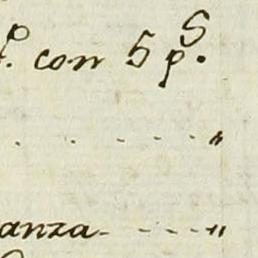 P. con 5 pS.
. . - - - - "
anza - - - - "